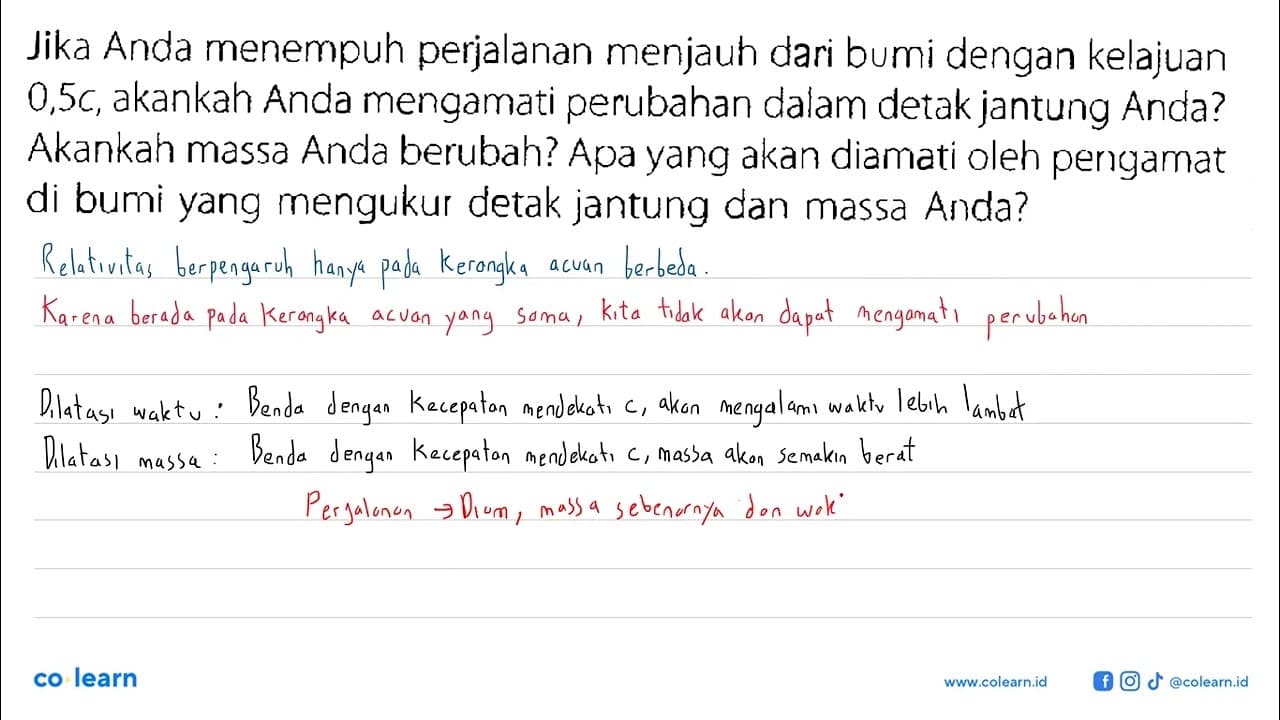 Jika Anda menempuh perjalanan menjauh dari bumi dengan kelajuan
0,5c, akankah Anda mengamati perubahan dalam detak jantung Anda?
Akankah massa Anda berubah? Apa yang akan diamati oleh pengamat
di bumi yang mengukur detak jantung dan massa Anda?
Relativitas berpengaruh hanya pada kerangka acuan berbeda.
Karena berada pada kerangka acuan yang sama, kita tidak akan dapat mengamati perubahan
Dilatasi waktu : Benda dengan kecepatan mendekati c, akan mengalami waktu lebih lambat
Dilatasi massa : Benda dengan kecepatan mendekati c, massa akan semakin berat
Perjalanan → Diam, massa sebenarnya dan wak
co learn
www.colearn.id
@colearn.id